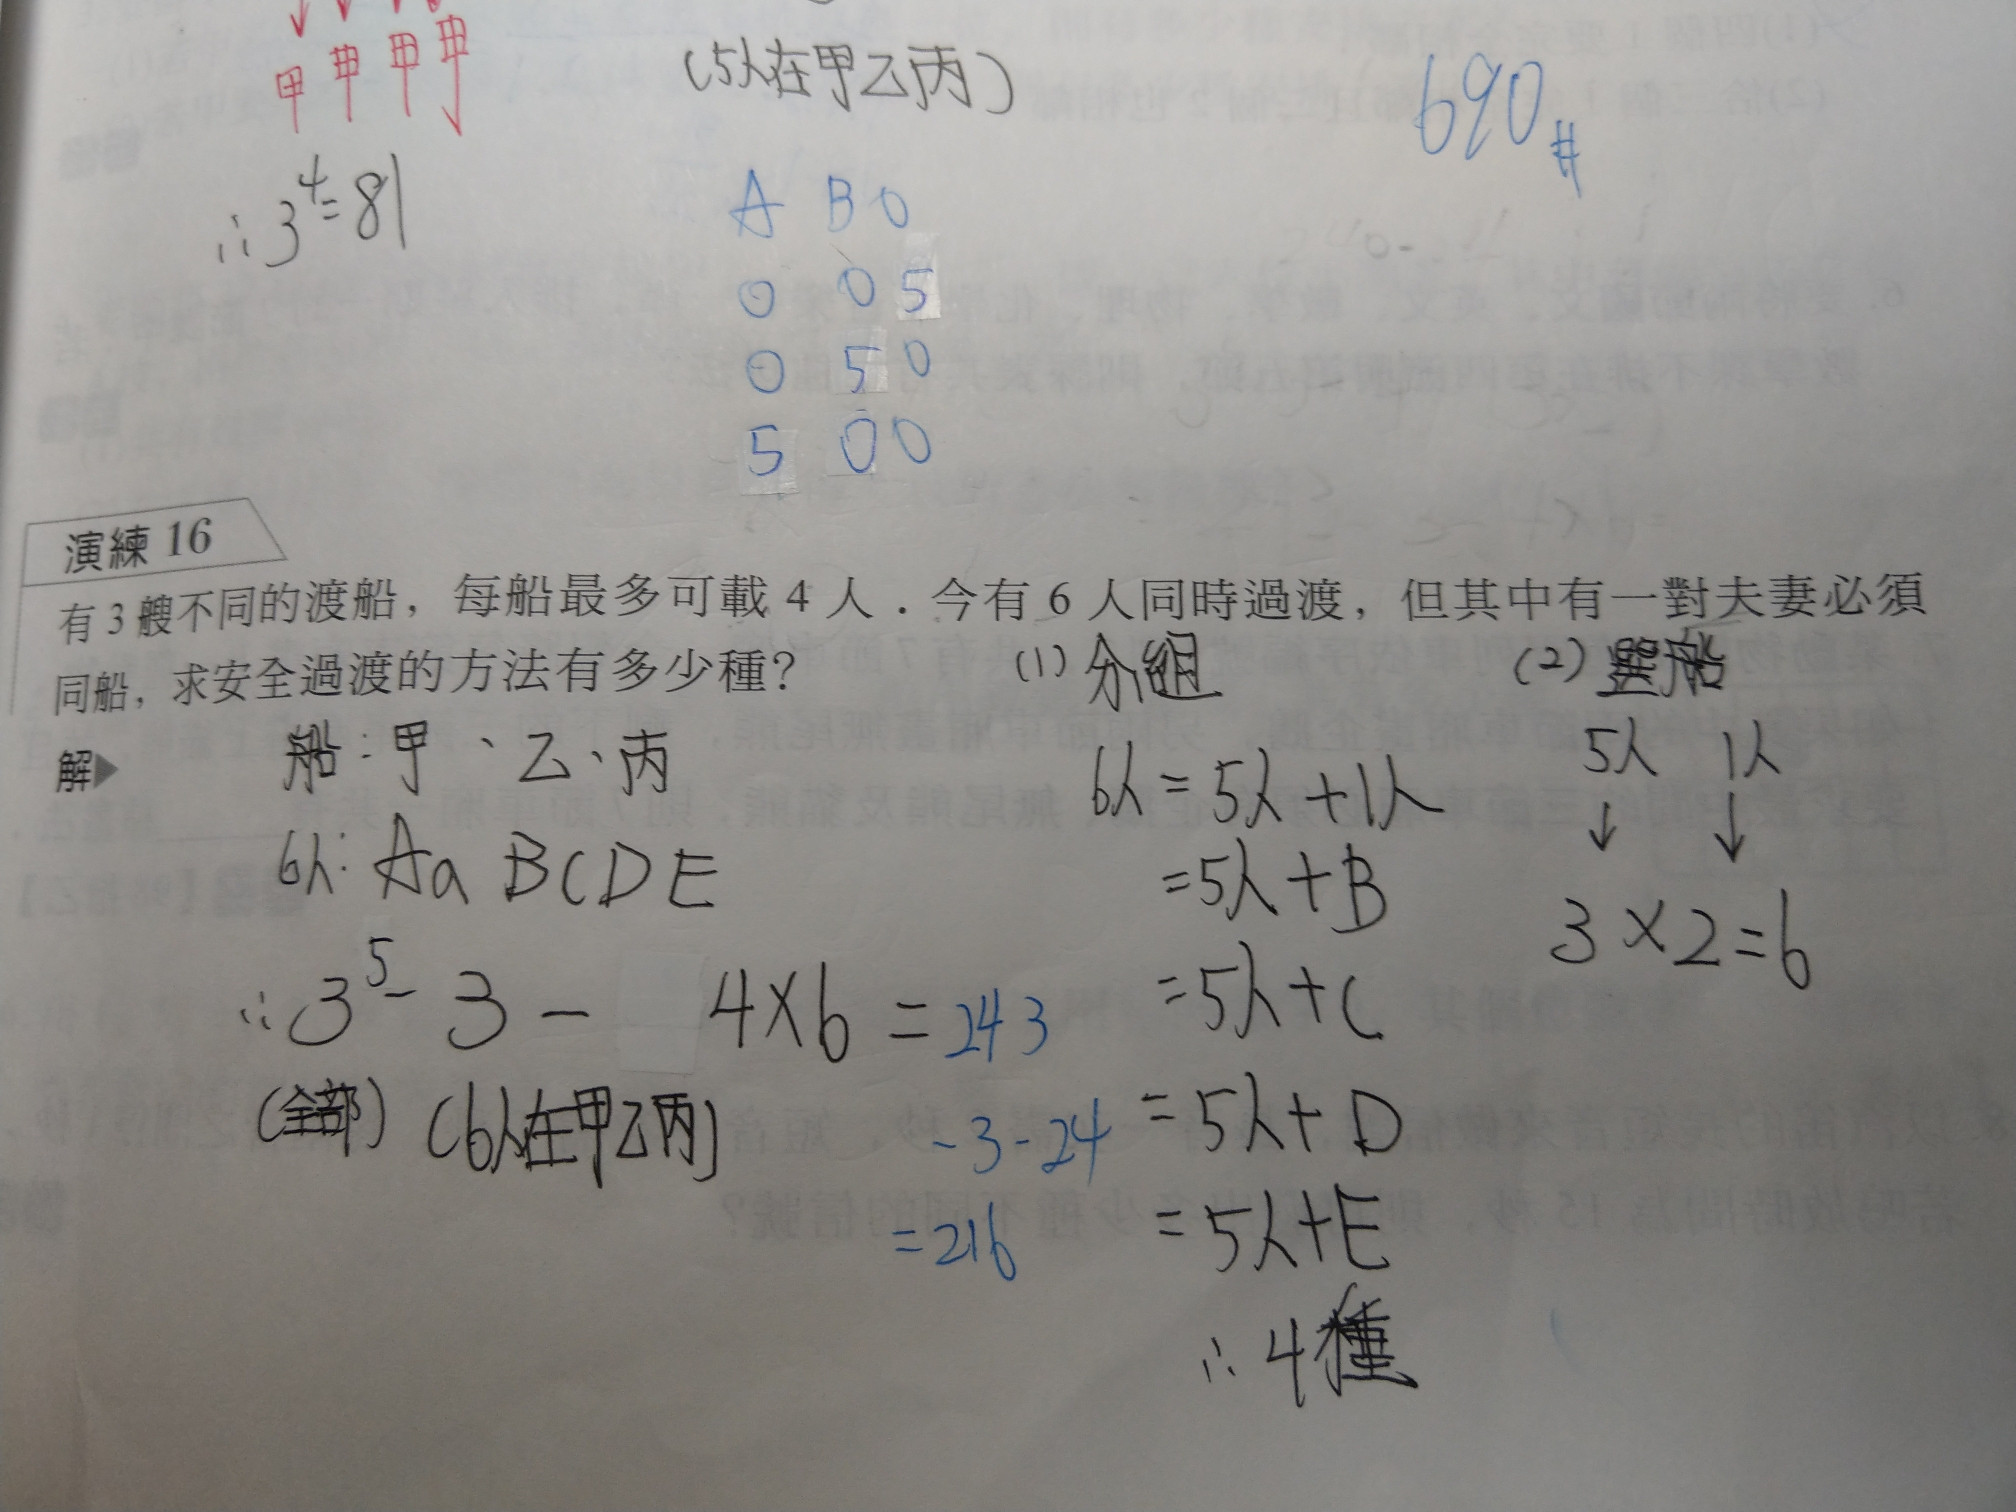 甲 甲 甲 甲
(5人在甲乙丙)
690#
∴3⁴=81
A B O
0 0 5
0 5 0
5 0 0
演練 16
有 3 艘不同的渡船，每船最多可載 4 人．今有 6 人同時過渡，但其中有一對夫妻必須
同船，求安全過渡的方法有多少種？
(1)分組
(2)選船
解▶
船:甲、乙、丙
6人: Aa B C D E
∴3⁵-3- 4×6 = 243
(全部) (6人在甲乙丙)
-3-24
=216
6人=5人+1人
=5人+B
=5人+C
=5人+D
=5人+E
∴4種
5人 1人
↓ ↓
3×2=6